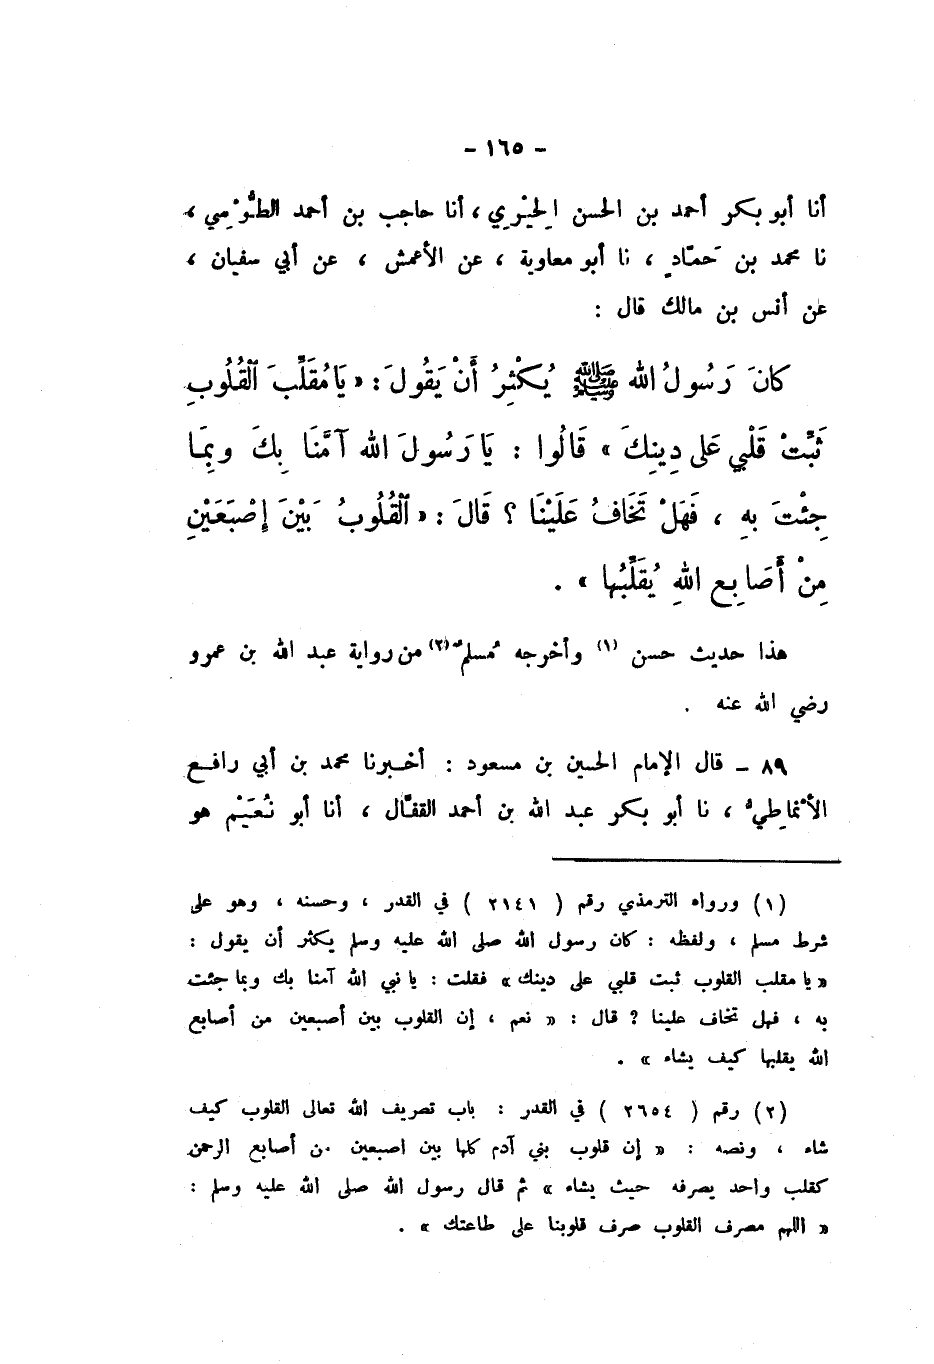 - ١٦٥ -
أنا أبو بكر أحمد بن الحسن الحِيْري ، أنا حاجب بن أحمد الطُّوْسِي ،
نا محمد بن حمّاد ، نا أبو معاوية ، عن الأعمش ، عن أبي سفيان ،
عن أنس بن مالك قال :
كانَ رَسُولُ اللهِ ﷺ يُكْثِرُ أَنْ يَقُولَ : « يَا مُقَلِّبَ الْقُلُوبِ
ثَبِّتْ قَلْبي عَلى دِينِكَ » قَالُوا : يَا رَسُولَ اللهِ آمَنَّا بِكَ وبِمَا
جِئْتَ بهِ ، فَهَلْ تَخَافُ عَلَيْنَا ؟ قَالَ : « الْقُلُوبُ بَيْنَ إِصْبَعَيْنِ
مِنْ أَصَابِعِ اللهِ يُقَلِّبُها » .
هذا حديث حسن (١) وأخرجه مُسلمٌ (٢) من رواية عبد الله بن عمرو
رضي الله عنه .
٨٩ - قال الإمام الحسين بن مسعود : أخبرنا محمد بن أبي رافع
الأنماطِيُّ ، نا أبو بكر عبد الله بن أحمد القفّال ، أنا أبو نُعَيْم هو
(١) ورواه الترمذي رقم ( ٢١٤١ ) في القدر ، وحسنه ، وهو على
شرط مسلم ، ولفظه : كان رسول الله صلى الله عليه وسلم يكثر أن يقول :
« يا مقلب القلوب ثبت قلبي على دينك » فقلت : يا نبي الله آمنا بك وبما جئت
به ، فهل تخاف علينا ؟ قال : « نعم ، إن القلوب بين أصبعين من أصابع
الله يقلبها كيف يشاء » .
(٢) رقم ( ٢٦٥٤ ) في القدر : باب تصريف الله تعالى القلوب كيف
شاء ، ونصه : « إن قلوب بني آدم كلها بين اصبعين من أصابع الرحمن
كقلب واحد يصرفه حيث يشاء » ثم قال رسول الله صلى الله عليه وسلم :
« اللهم مصرف القلوب صرف قلوبنا على طاعتك » .